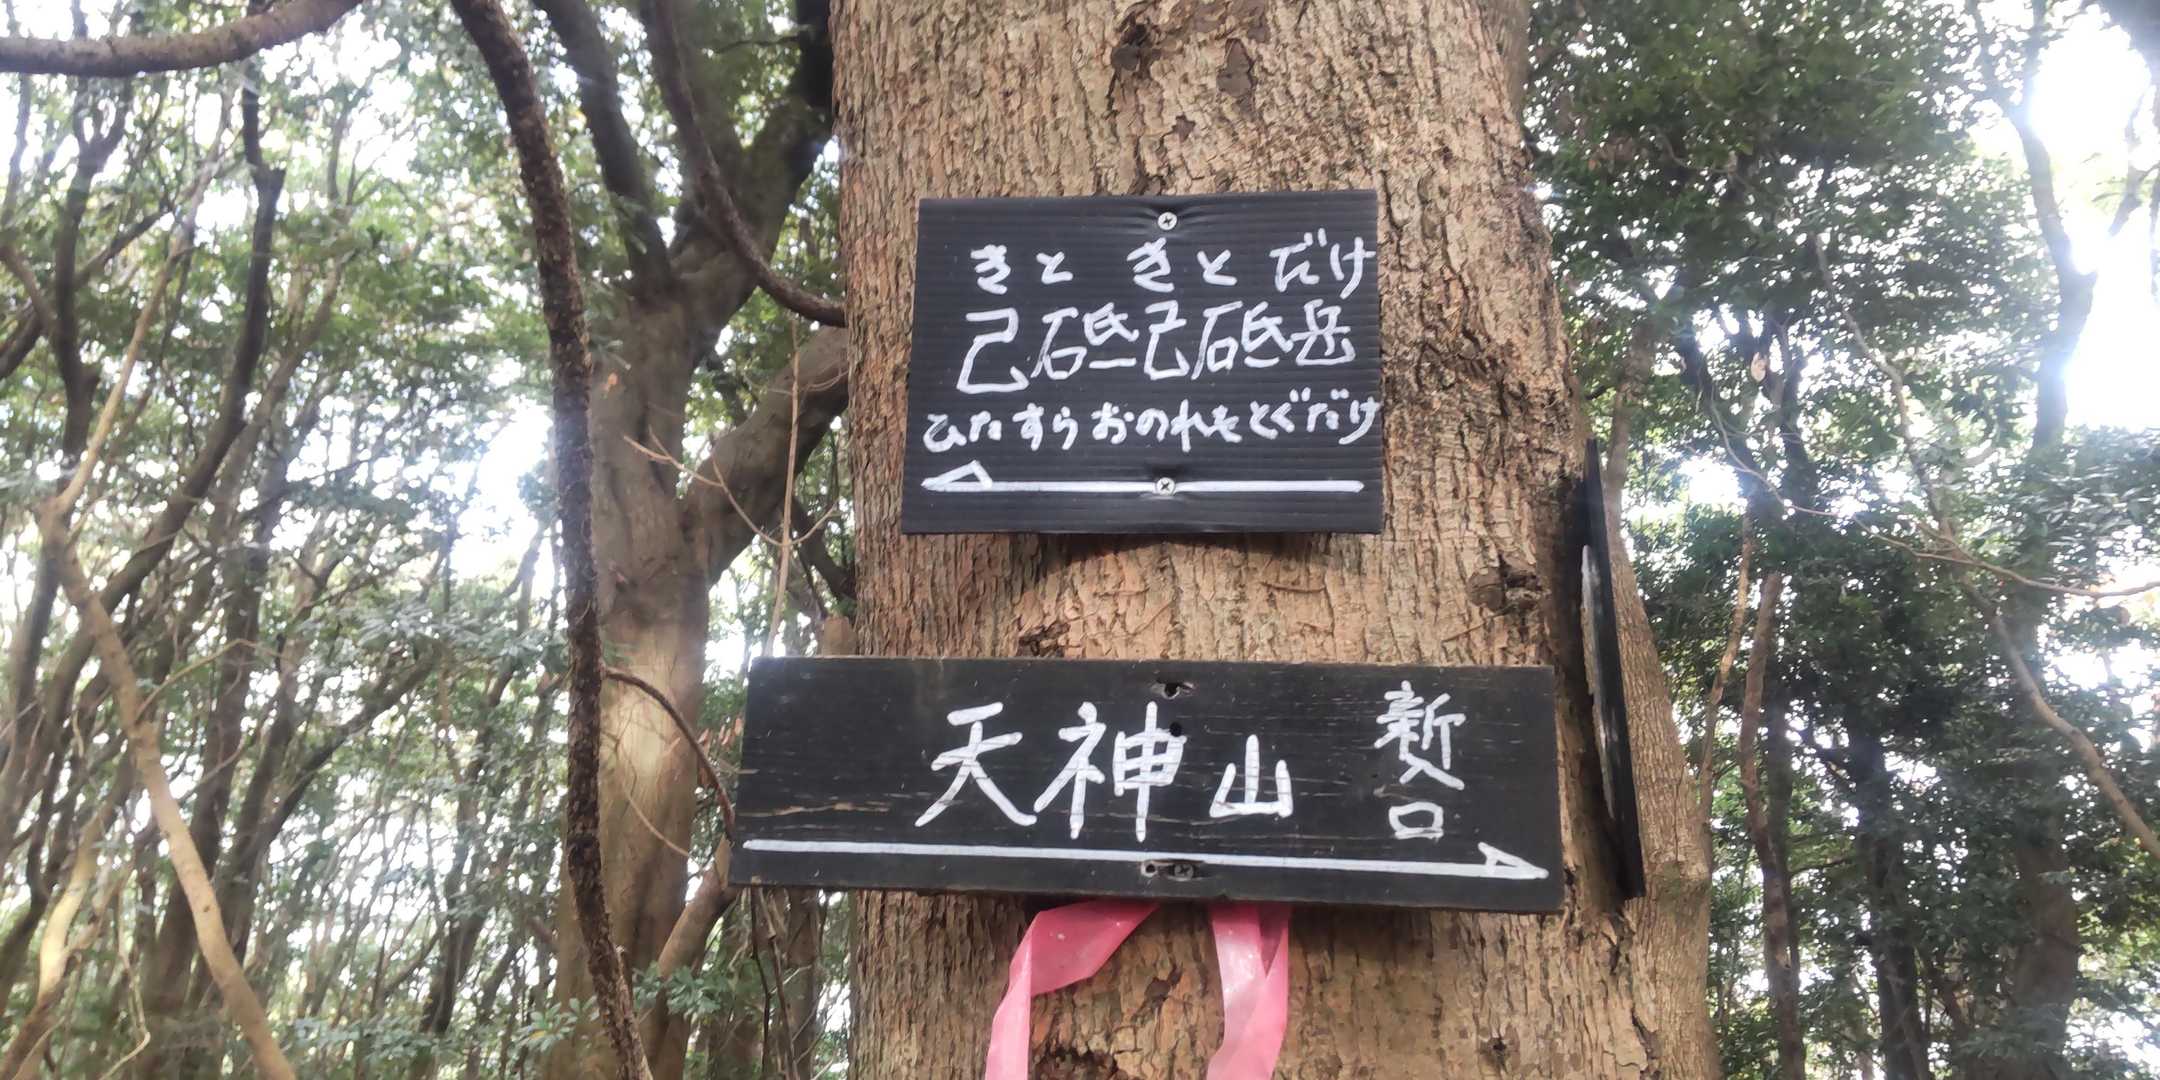 きと きと だけ
己砥己砥岳
ひたすらおのれをとぐだけ
天神山 新入口